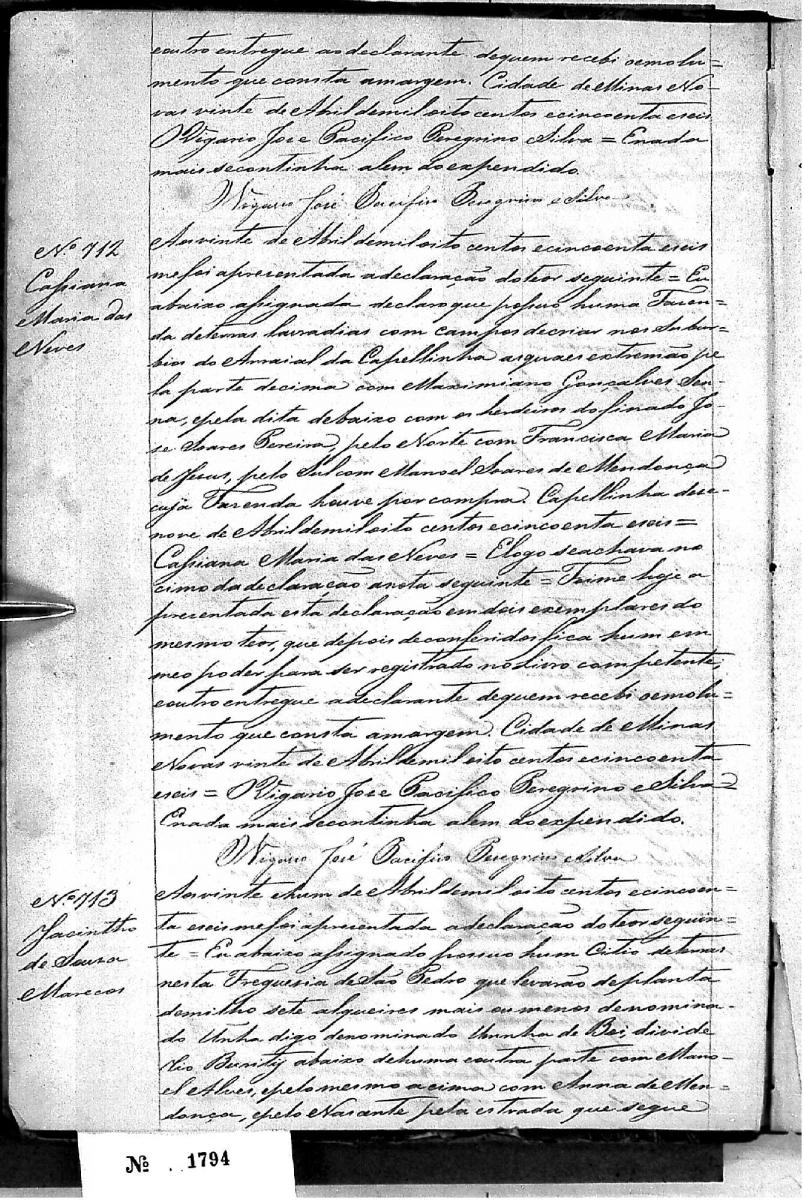 e outro entregue ao declarante de quem recebi o emolu=
mento que consta a margem. Cidade de Minas No-
vas vinte de Abril de mil oito centos e cincoenta e seis
O Vigario Jose Pacifico Peregrino e Silva = E nada
mais se continha alem do expendido.
O Vigario José Pacifico Peregrino e Silva
Nº 712
Cassiana
Maria das
Neves
Aos vinte de Abril de mil oito centos e cincoenta e seis
me foi apresentada a declaração do teor seguinte = Eu
abaixo assignada declaro que possuo huma Fazen-
da de terras lavradias com campos de criar nos Subur-
bios do Arraial da Capellinha as quaes extremão pe
la parte de cima com Maximiano Gonçalves Sen-
na, e pela dita de baixo com os herdeiros do finado Jo-
se Soares Pereira, pelo Norte com Francisca Maria
de Jesus, pelo Sul com Manoel Soares de Mendonça
cuja Fazenda houve por compra. Capellinha deze-
nove de Abril de mil oito centos e cincoenta e seis =
Cassiana Maria das Neves = E logo se achava no
cimo da declaração a nota seguinte = Foi me hoje a
prezentada esta declaração em dois exemplares do
mesmo teor, que depois de conferidos fica hum em
meo poder para ser registrado no livro competente,
e outro entregue a declarante de quem recebi o emolu=
mento que consta a margem. Cidade de Minas
Novas vinte de Abril de mil oito centos e cincoenta
e seis = O Vigario Jose Pacifico Peregrino e Silva =
E nada mais se continha alem do expendido.
O Vigario José Pacifico Peregrino e Silva
Nº 713
Jacintho
de Souza
Marecos
Aos vinte e hum de Abril de mil oito centos e cincoen-
ta e seis me foi apresentada a declaração do teor seguin-
te = Eu abaixo assignado possuo hum Citio de terras
nesta Freguesia de São Pedro que levarão de planta
de milho sete alqueires mais ou menos denomina-
do Unha digo denominado Unha de Boi, divide
Rio Burity abaixo de huma e outra parte com Mano-
el Alves, e pelo mesmo acima com Anna de Men-
donça, e pelo Nascente pela estrada que segue
Nº 1794